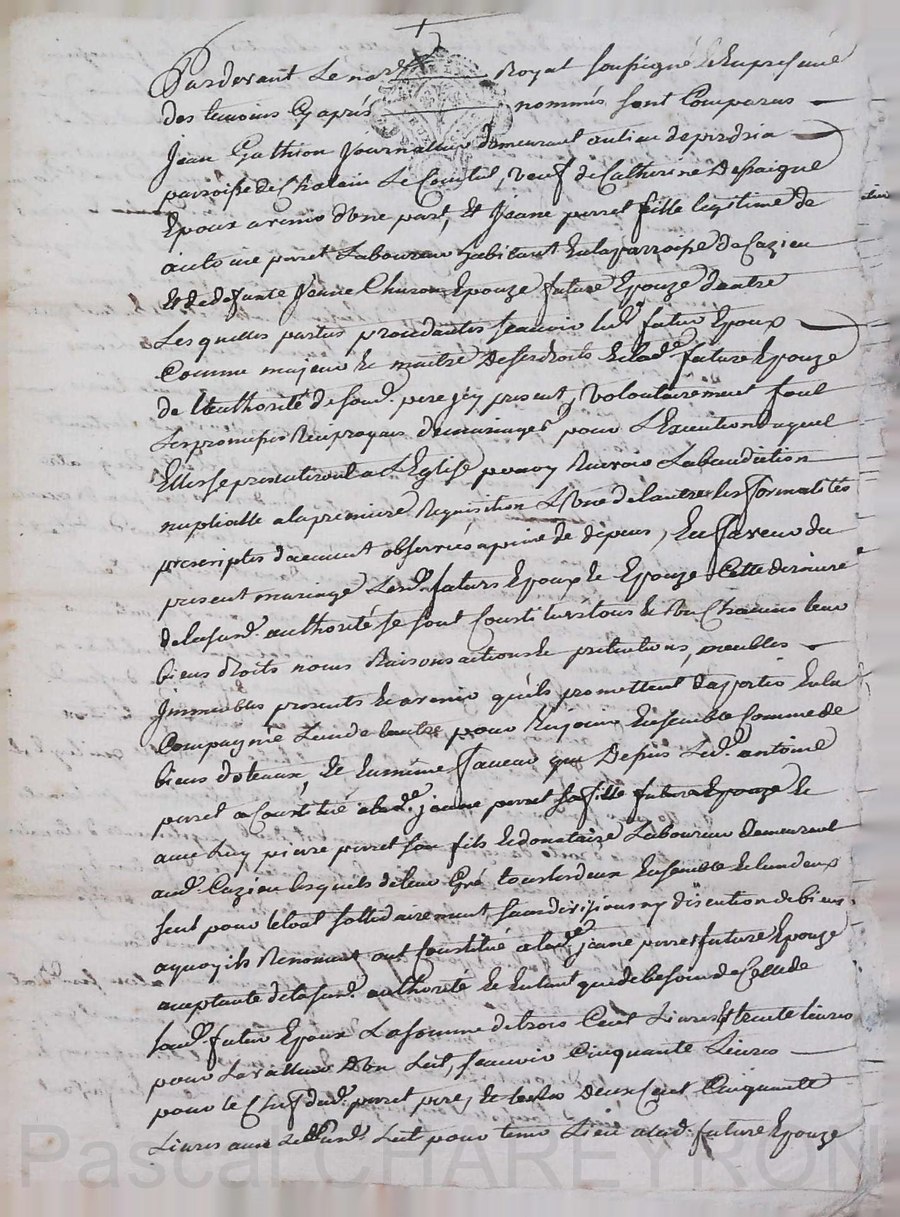 Pardevant Le nore Royal soussigné & En presence
des temoins Cy aprés nommés sont Comparus
Jean Gathion Journallier demeurant au lieu de
parroisse de Chalain Le Comtal, Veuf de Catherine Defaigue
Epoux avenir d'Une part, Et Jeane perret fille legitime de
antoine perret Laboureur habitant En la parroisse de Cuzieu
Et de defunte Jeane Epouze future Epouze dautre
Lesquelles parties proceddantes scavoir led. futur Epoux
Comme majeur Et maitre De ses droits Et lad.e future Epouze
de Lauthorité de sond. pere icy present, Volontairement font
Les promesses Reciproques de mariage pour L'Execution duquel
Elles se presenteront a L'Eglise pour y Recevoir La benediction
nuptialle a la premiere Requisition L'Une de lautre les formalités
prescriptes dacement observées a peine de depens, En faveur du
present mariage Lesd. futurs Epoux Et Epouze Cette derniere
de la susd. authorité se sont Constitués tous Et Un Chacuns leurs
biens droits noms Raisons actions Et pretentions, meubles
Immeubles presents Et avenir qu'ils promettent daporter En la
Compagnie Lun de lautre pour En jouir Ensemble Comme de
biens doteaux, Et En même faveur que Depuis Led. antoine
perret a Constitué a lad.e jeane perret sa fille future Epouze Et
avec Luy pierre perret son fils Et donataire Laboureur Demeurant
aud. Cuzieu lesquels de leur Gré tous les deux Ensemble Et lun deux
seul pour le tout sollidairement sans division ny discution de biens
a quoy ils Renoncent ont Constitué a lad.e jeane perret future Epouze
acceptante de la susd. authorité Et Entant que de besoin de Celle de
sond. futur Epoux La somme de trois Cent Livres Et trente Livres
pour La valleur d'Un Lit, scavoir Cinquante Livres
pour le Chef dud. perret pere, Et Deux Cent Cinquante
Livres avec Le susd. Lit pour tenir Lieu a lad. future Epouze
Pascal CHAREYRON